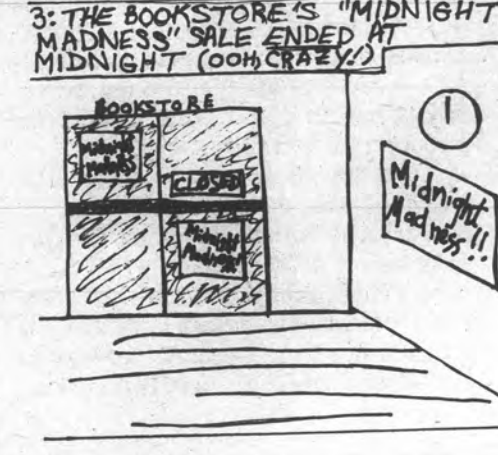 3: THE BOOKSTORE'S "MIDNIGHT
MADNESS" SALE ENDED AT
MIDNIGHT (OOH, CRAZY!)
BOOKSTORE
Midnight
Madness
CLOSED
Midnight
Madness
Midnight
Madness!!